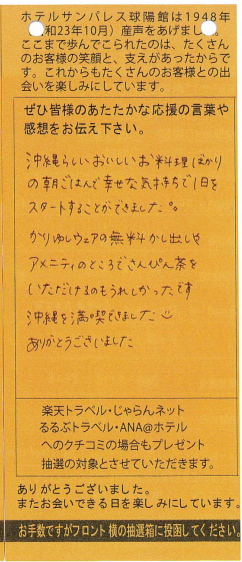 ホテルサンパレス球陽館は1948年
和23年10月）産声をあげまし
ここまで歩んでこられたのは、たくさん
のお客様の笑顔と、支えがあったからで
す。これからもたくさんのお客様との出
会いを楽しみにしています。
ぜひ皆様のあたたかな応援の言葉や
感想をお伝え下さい。
沖縄らしいおいしいお料理ばかり
の朝ごはんで幸せな気持ちで1日を
スタートすることができました。
かりゆしウェアの無料かし出しや
アメニティのところでさんぴん茶を
いただけるのもうれしかったです
沖縄を満喫できました
ありがとうございました
楽天トラベル・じゃらんネット
るるぶトラベル・ANA@ホテル
へのクチコミの場合もプレゼント
抽選の対象とさせていただきます。
ありがとうございました。
またお会いできる日を楽しみにしています。
お手数ですがフロント横の抽選箱に投函してください。